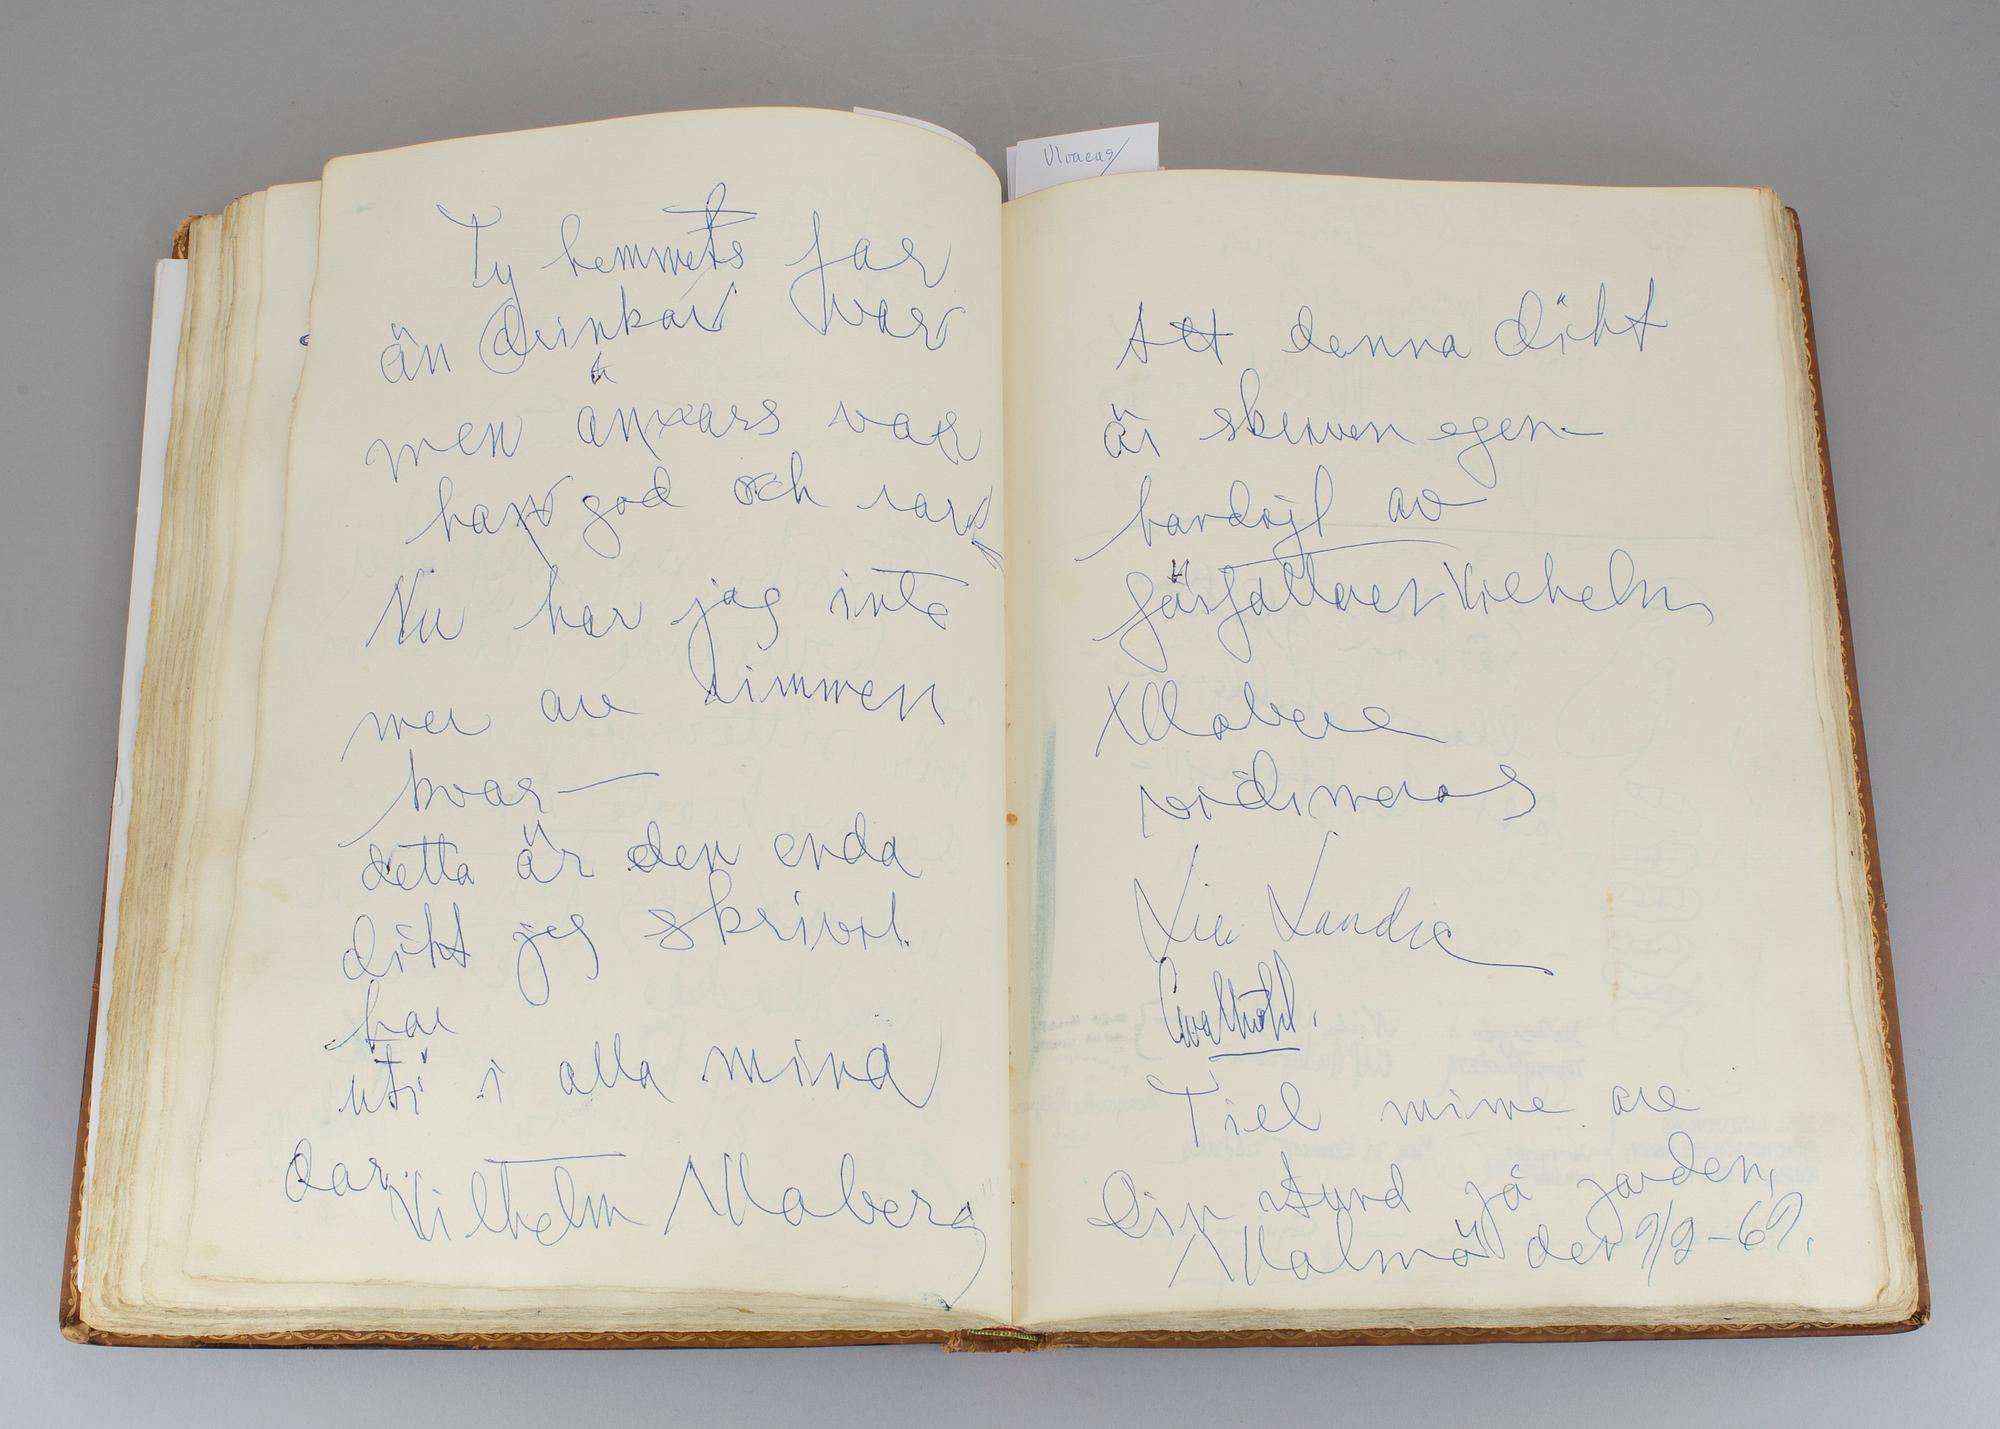 Ty hemmets far
än drinkar var
men änxars var
han god och rar
Nu har jag inte
mer av
kvar —
detta är den enda
dikt jag skrivit
har
uti i alla mina
dar.
Vilhelm Moberg
Att denna dikt
är skriven egen-
handigt av
författaren Vilhelm
Moberg
vidimeras
Till minne av
Din stund på jorden,
Malmö den 9/9-69.